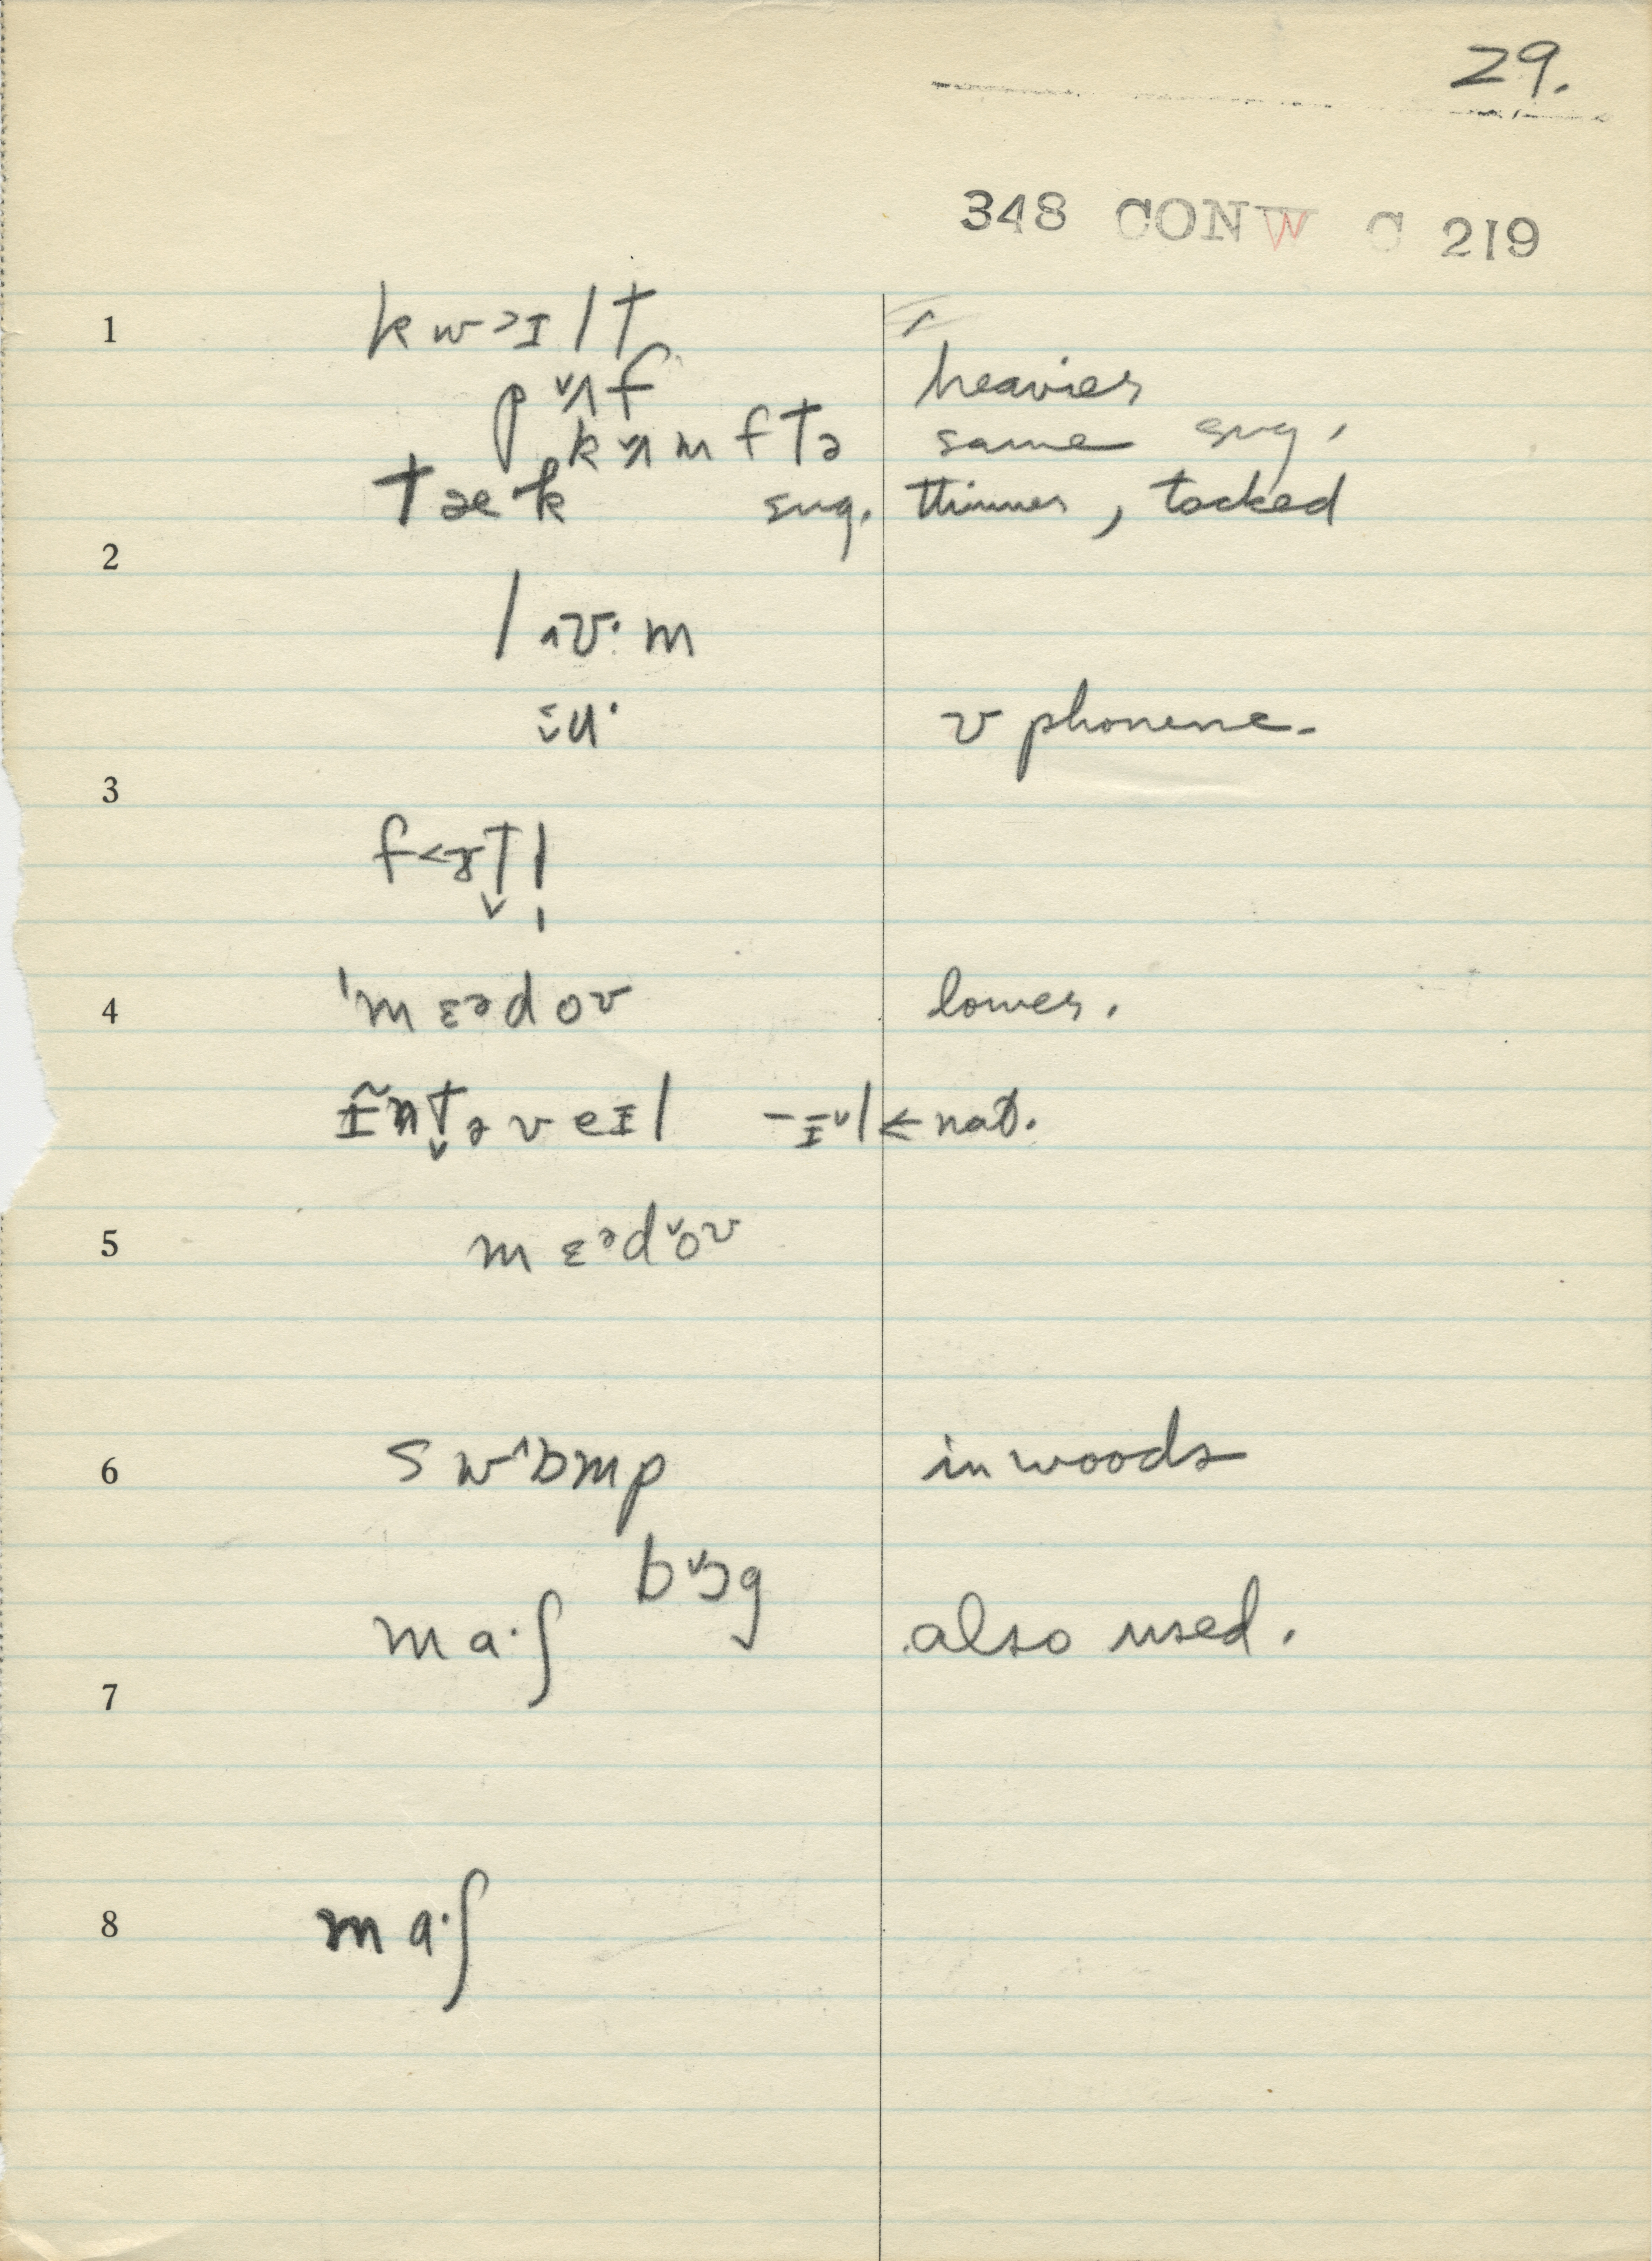 29.
348 CONW C 219
1 kw>ɪlt
pˇʌf heavier
kˇʌmftə same sug.
tæk sug. thinner, tacked
2
l˄ʊ·m
ʊ phoneme.
3
f<ɤt̬l̩
4 ˈmɛədoʊ lower.
ɪ̃nt̬əveɪl -ɪˇl ← nat.
5 mɛədˇoʊ
6 sw^ɒmp in woods
bˇɒg
ma·ʃ also used.
7
8 ma·ʃ